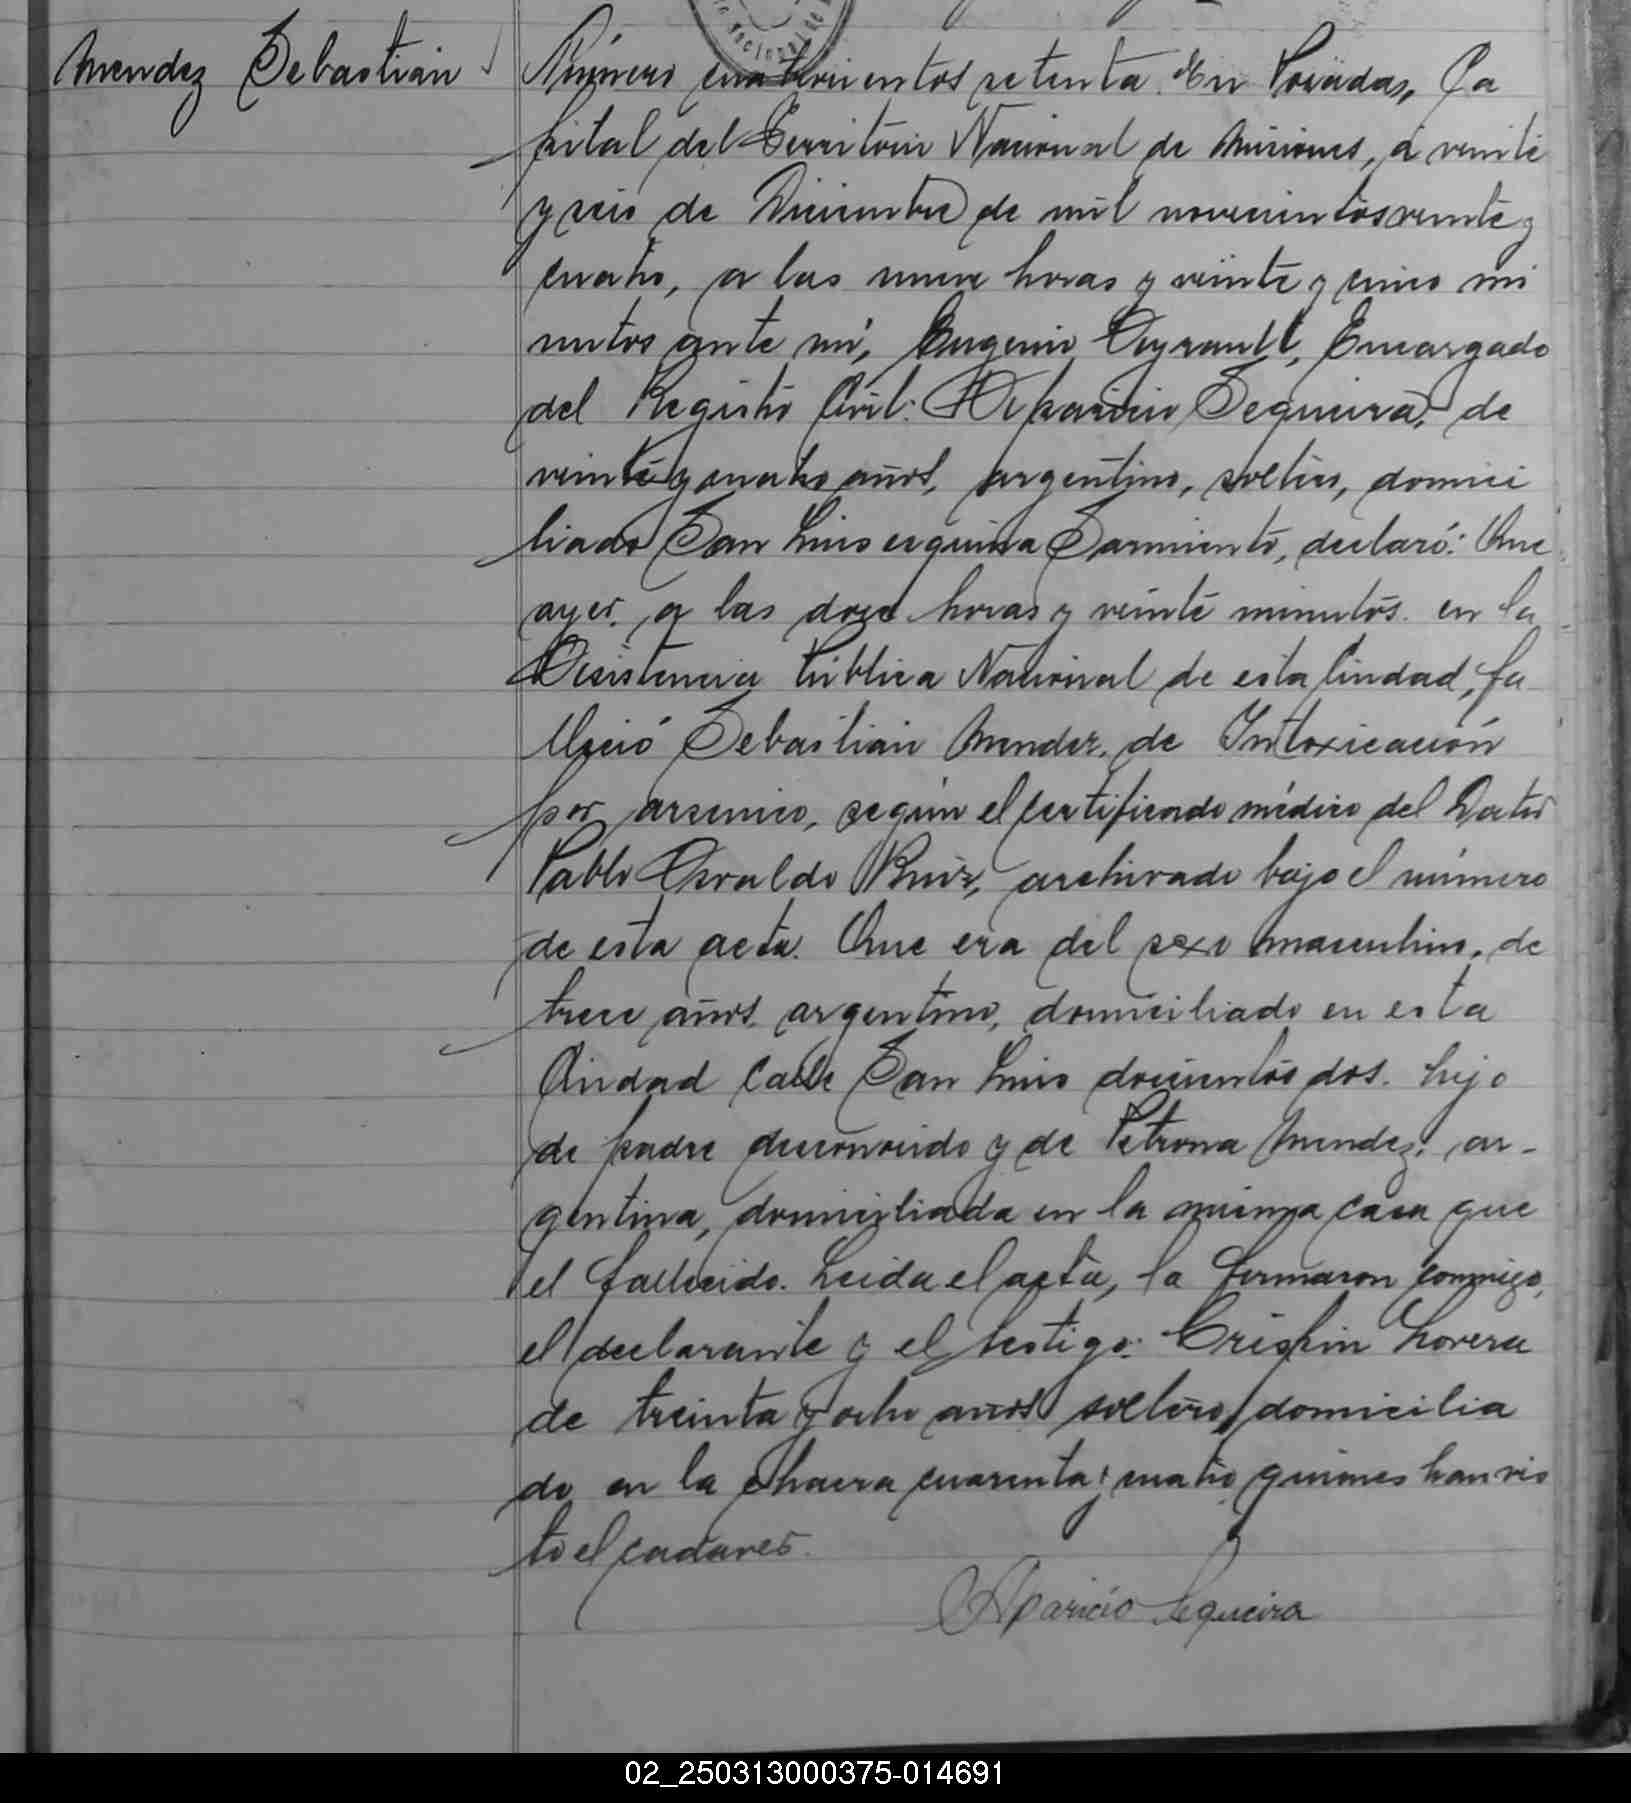 Mendez Sebastián
Número cuatrocientos setenta. En Posadas, Ca
pital del Territorio Nacional de Misiones, á veinte
y seis de Diciembre de mil novecientos veinte y
cuatro, a las nueve horas y veinte y cinco mi
nutos ante mí, Eugenio Encargado
del Registro Civil: Aparicio Sequeira, de
veinte y cuatro años, argentino, soltero, domici
liado San Luis esquina Sarmiento, declaró: Que
ayer, a las doce horas y veinte minutos. en la
Asistencia Pública Nacional de esta Ciudad, fa
lleció Sebastián Mendez, de Intoxicación
por arsenico, según el certificado médico del Doctor
Pablo Osvaldo Ruiz, archivado bajo el número
de esta acta. Que era del sexo masculino, de
trece años, argentino, domiciliado en esta
Ciudad calle San Luis doscientos dos. hijo
de padre desconocido y de Petrona Mendez, ar-
gentina, domiciliada en la misma casa que
el fallecido. Leida el acta, la firmaron conmigo,
el declarante y el testigo: Crispin Lovera
de treinta y ocho años soltero, domicilia
do en la chacra cuarenta y cuatro, quienes han vis
to el cadaver.
Aparicio Sequeira
02_250313000375-014691